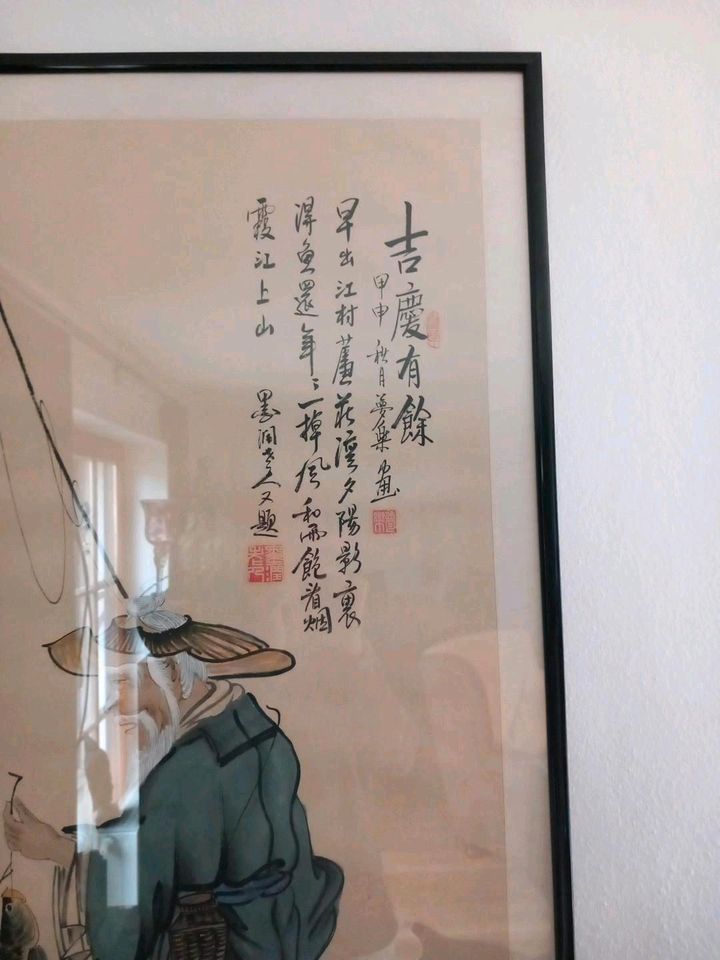 吉慶有餘
甲申秋月夢樂画
早出江村蘆荻濱夕陽影裏
得魚還年々一棹風和雨飽看烟
霞江上山
墨润老人又題